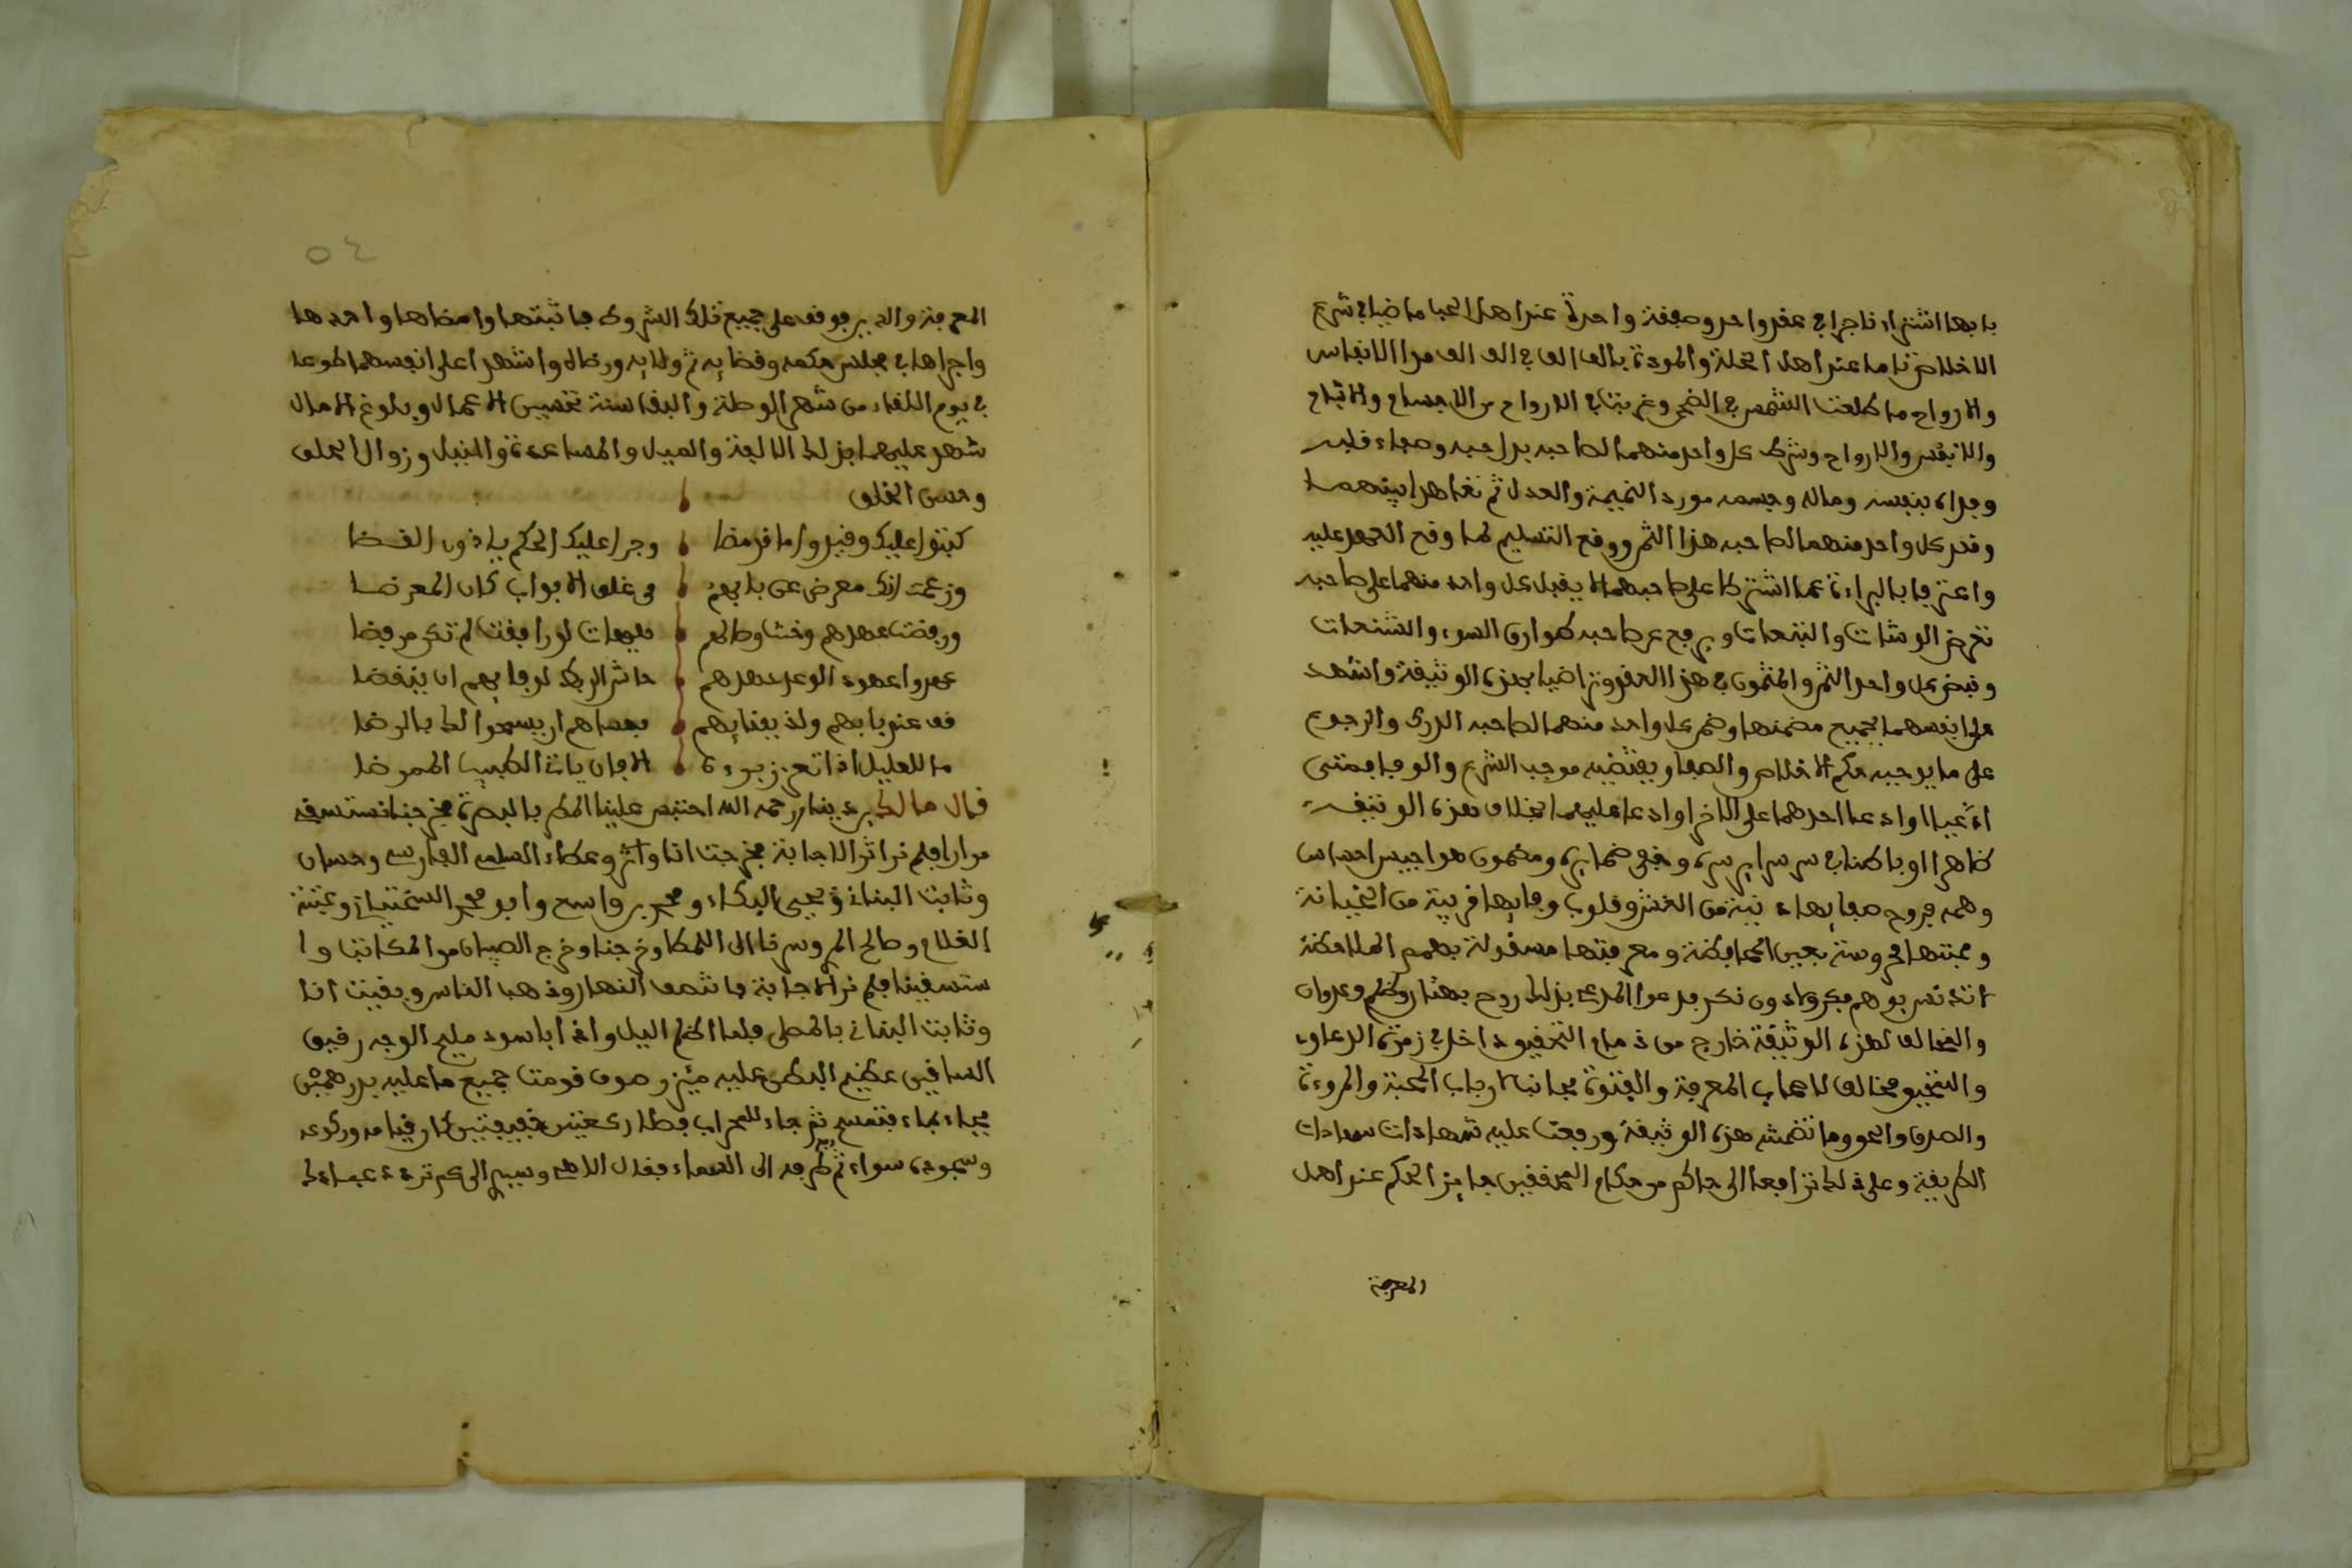 بابها اشترا ناجزا في عقد واحد وصفقة واحدة عند اهل الحبا ماضيا في شرع
الاخلاص ناما عند اهل الخلة والمودة بالف الف في الف الف من الانفاس
والارواح ما طلعت الشمس في الضحى وغربت في الارواح من الاجساح والاتباح
والانفس والارواح وشرط كل واحد منهما لصاحبه بدل حبه وصفاء قلبه
وفداه بنفسه وماله وجسمه مورد النميمة والعدل ثم تعاهدا بينهما
وقدر كل واحد منهما لصاحبه هذا الثمن ووقع التسليم لما وقع العهد عليه
واعترفا بالبراءة عما اشترطا على صاحبهما لا يقبل كل واحد منهما على صاحبه
تعرض الوشات والتبعات ويرفع عن صاحبه طوارق السوء والشنعات
وقبض كل واحد الثمن والمثمون في هذا العقد وتراضيا بهذه الوثيقة واشهد
على انفسهما بجميع مضمنها وضمن كل واحد منهما لصاحبه الدرك والرجوع
على ما يوجبه حكم الاخلاص والصفا ويقتضيه موجب الشرع والوفا فمتى
ادعيا او ادعا احدهما على الاخر او ادعا عليهما بخلاف هذه الوثيقة
ظاهرا او باطنا في سر سرايره وخفي ضمايره ومضمون هواجيس احساس
وهمه فروح صفايها نية من الغش وقلوب وفايها قريبة من الخيانة
ومحبتها محروسة بعين المحافظة ومعرفتها مسقولة بفهم الملاحظة
والمخالف لهذه الوثيقة خارج من ذمام التحقيق داخل في زمرة الدعاوى
والتحقيق مخالف لاصحاب المعرفة والفتوة مجانب لارباب المحبة والمروءة
والصدق والحق وما تضمنته هذه الوثيقة ورفعت عليه شهادات سادات
الطريقة وعلى ذلك ترافعا الى حاكم من حكام المحققين جايز الحكم عند اهل
المعرفة
٥٤
المعرفة والدين فوقف على جميع تلك الشروط فاثبتها وامضاها واحدها
واجراها في مجلس حكمه وقضايه ثم ولايه ورضاه واشهدا على انفسهما طوعا
في يوم اللقاء من شهر الوصلة والبقا سنة تحسين الاعمال وبلوغ الامال
شهد عليهما بذلك الالفة والميل والمساعدة والنبل وزوال الملق
وحسن الخلق
كتبوا عليك وقيدوا ما قد مضا وجرا عليك الحكم ياذون القضا
وزعمت انك معرض عن بابهم من غلق الابواب كان المعرضا
ورفضت عهدهم وخنت وصالهم هيهات لو رافقت لم تكن مرفضا
عقدوا عهود الوعد عهدهم حاشا لربك لوفايهم ان ينقضا
قف عند بابهم ولذ بفنايهم فعساهم ان يسمحوا لك بالرضا
ما للعليل اذا تعزز بروه الا فان ياتي الطبيب الممرضا
قال مالك بن دينار رحمه الله احتبس علينا المطر بالبصرة فخرجنا نستسقي
مرارا فلم نر اثر الاجابة فخرجت انا وعطاء السلمي الفارسي وحسان
وثابت البناني ويحيى البكاء ومحمد بن واسع وابو محمد السختياني وعتبة
الغلام وصالح المري وسرنا الى المصلا وخرجنا وخرج الصبيان من المكاتب وا
ستسقينا فلم نر الاجابة فانتصف النهار وذهب الناس وبقيت انا
وثابت البناني بالمصلى فلما اظلم اليل واذا باسود مليح الوجه رقيق
الساقين عظيم البطن عليه ميزر صوف قومت جميع ما عليه بدرهمين
فجاء بماء فتمسح ثم جاء للمحراب فصلا ركعتين خفيفتين كان قيامه وركوعه
وسجوده سواء ثم رفع طرفه الى السماء فقال الاهي وسيدي الى كم تردد عبادك